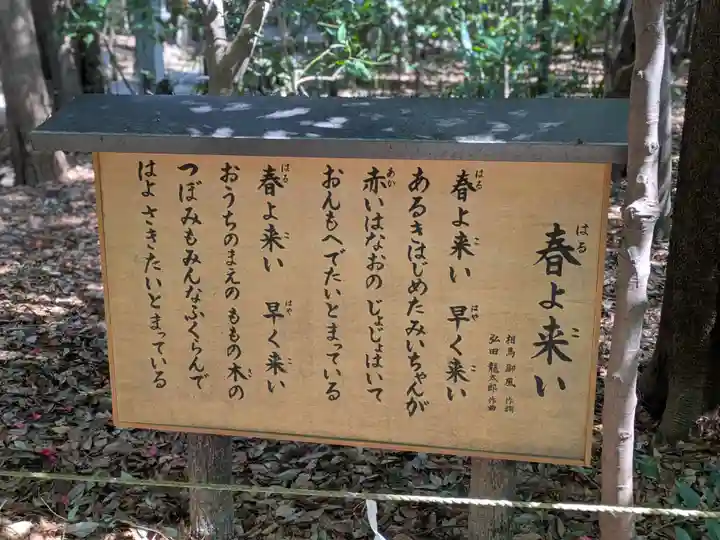 春よ来い
相馬御風 作詞
弘田龍太郎 作曲
春よ来い 早く来い
あるきはじめたみいちゃんが
赤いはなおの じょじょはいて
おんもへでたいとまっている
春よ来い 早く来い
おうちのまえの ももの木の
つぼみもみんなふくらんで
はよ さきたいとまっている